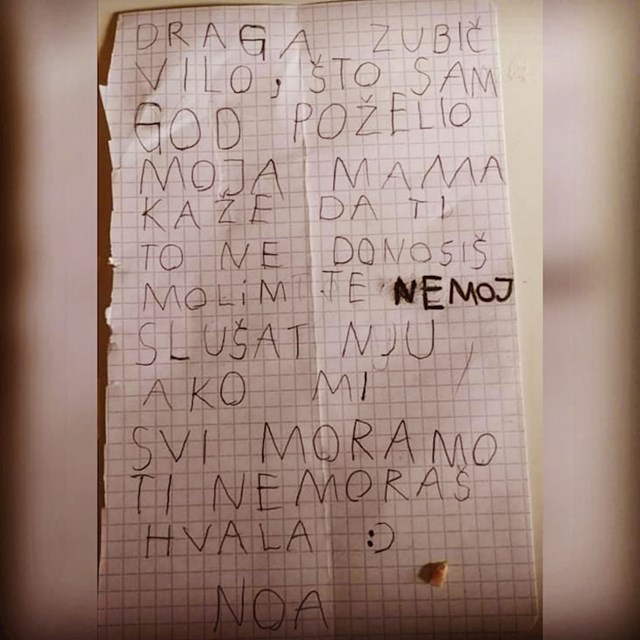 DRAGA ZUBIČ
VILO, ŠTO SAM
GOD POŽELIO
MOJA MAMA
KAŽE DA TI
TO NE DONOSIŠ
MOLiM TE NEMOJ
SLUŠAT NJU
AKO MI
SVI MORAMO
TI NEMORAŠ
HVALA :)
NOA